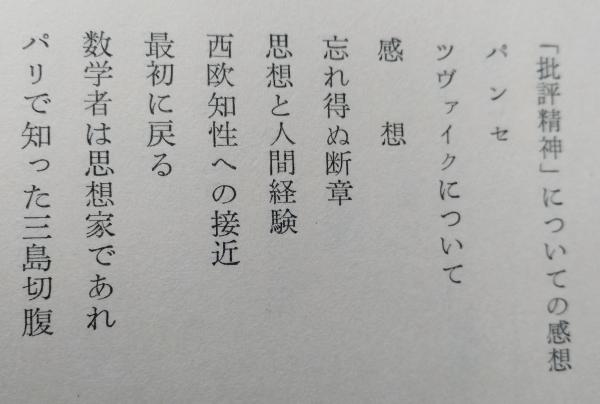 「批評精神」についての感想
パンセ
ツヴァイクについて
感想
忘れ得ぬ断章
思想と人間経験
西欧知性への接近
最初に戻る
数学者は思想家であれ
パリで知った三島切腹